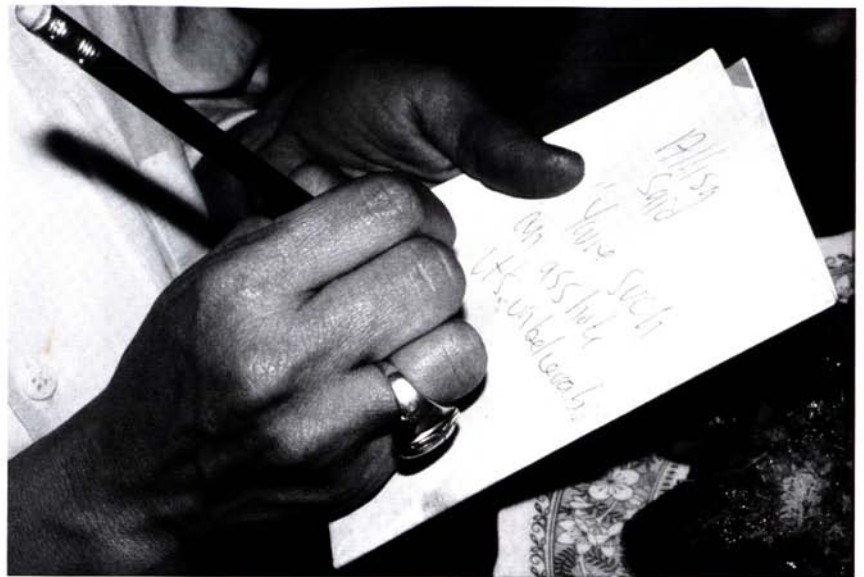 said
"You're such
an asshole
it's unbelievable.